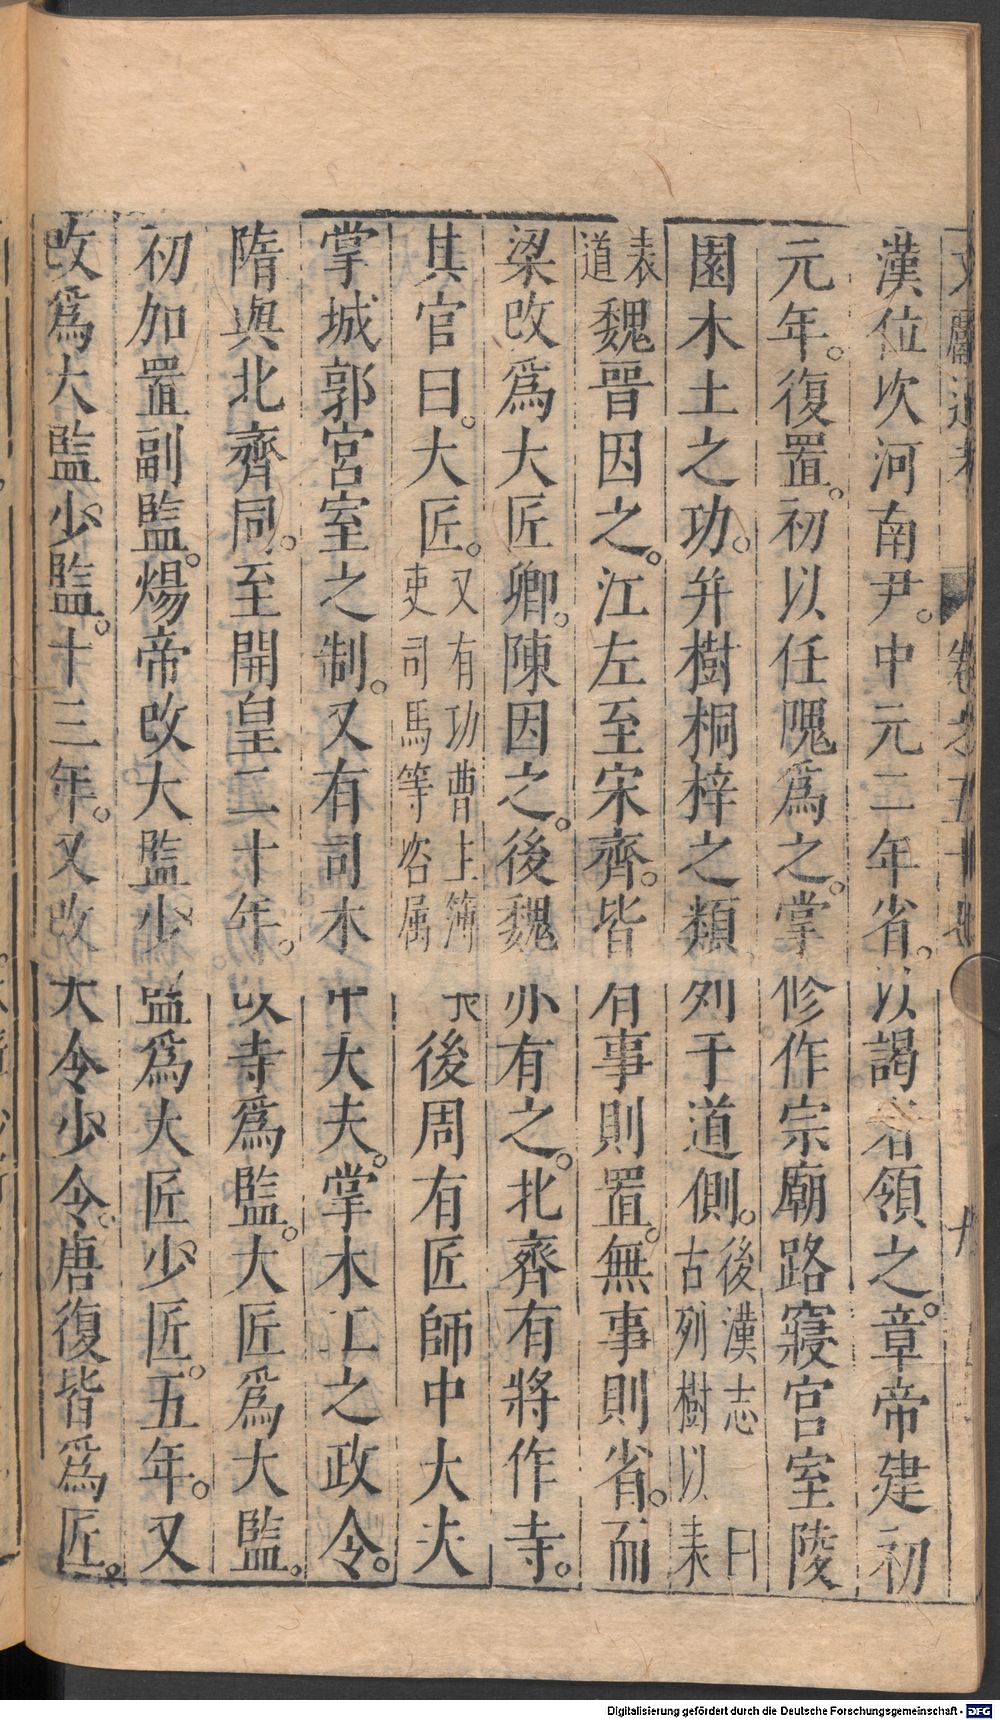 文獻通考 卷之五十七 十
漢位次河南尹。中元二年省。以謁者領之。章帝建初
元年。復置。初以任隗爲之。掌修作宗廟路寢宮室陵
園木土之功。并樹桐梓之類列于道側。後漢志曰古列樹以表
表道魏晉因之。江左至宋齊。皆有事則置。無事則省。而
梁改爲大匠卿。陳因之。後魏亦有之。北齊有將作寺。
其官曰。大匠。又有功曹主簿長吏司馬等各属後周有匠師中大夫
掌城郭宮室之制。又有司木中大夫。掌木工之政令。
隋與北齊同。至開皇二十年。改寺爲監。大匠爲大監。
初加置副監。煬帝改大監少監爲大匠少匠。五年。又
改爲大監少監。十三年。又改大令少令。唐復皆爲匠。
Digitalisierung gefördert durch die Deutsche Forschungsgemeinschaft - DFG